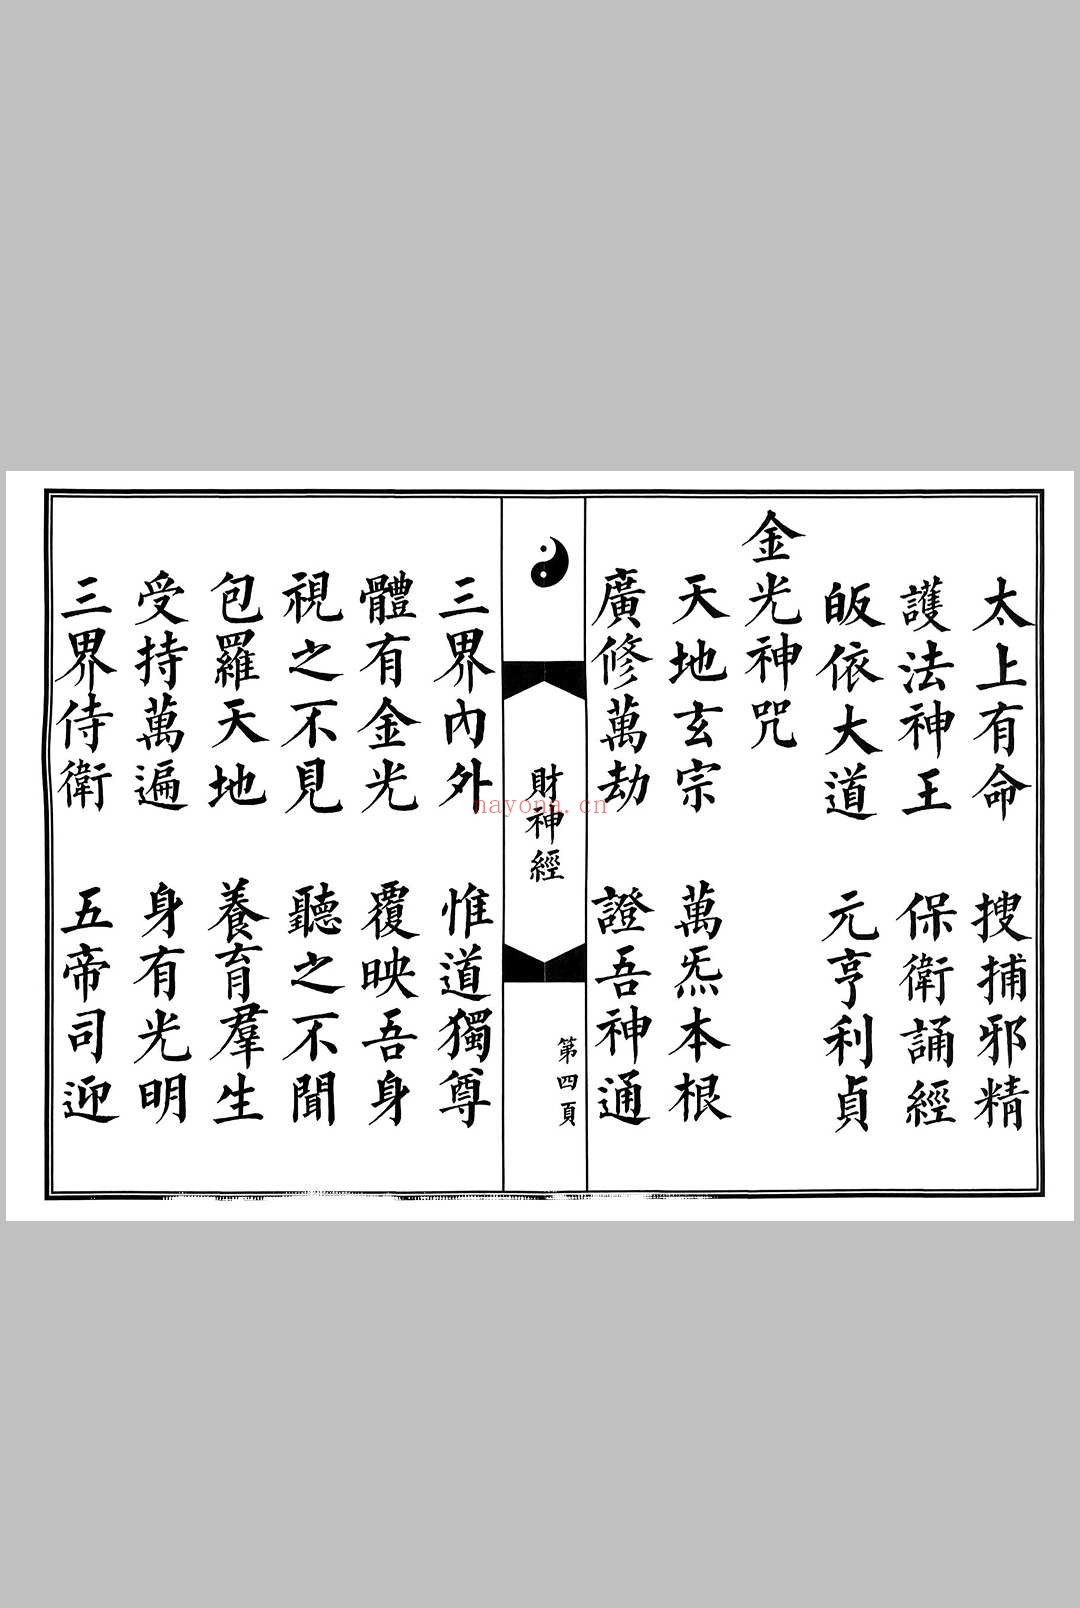 太上有命 搜捕邪精
護法神王 保衛誦經
皈依大道 元亨利貞
金光神咒
天地玄宗 萬炁本根
廣修萬劫 證吾神通
財神經
第四頁
三界內外 惟道獨尊
體有金光 覆映吾身
視之不見 聽之不聞
包羅天地 養育羣生
受持萬遍 身有光明
三界侍衛 五帝司迎
nayona.cn